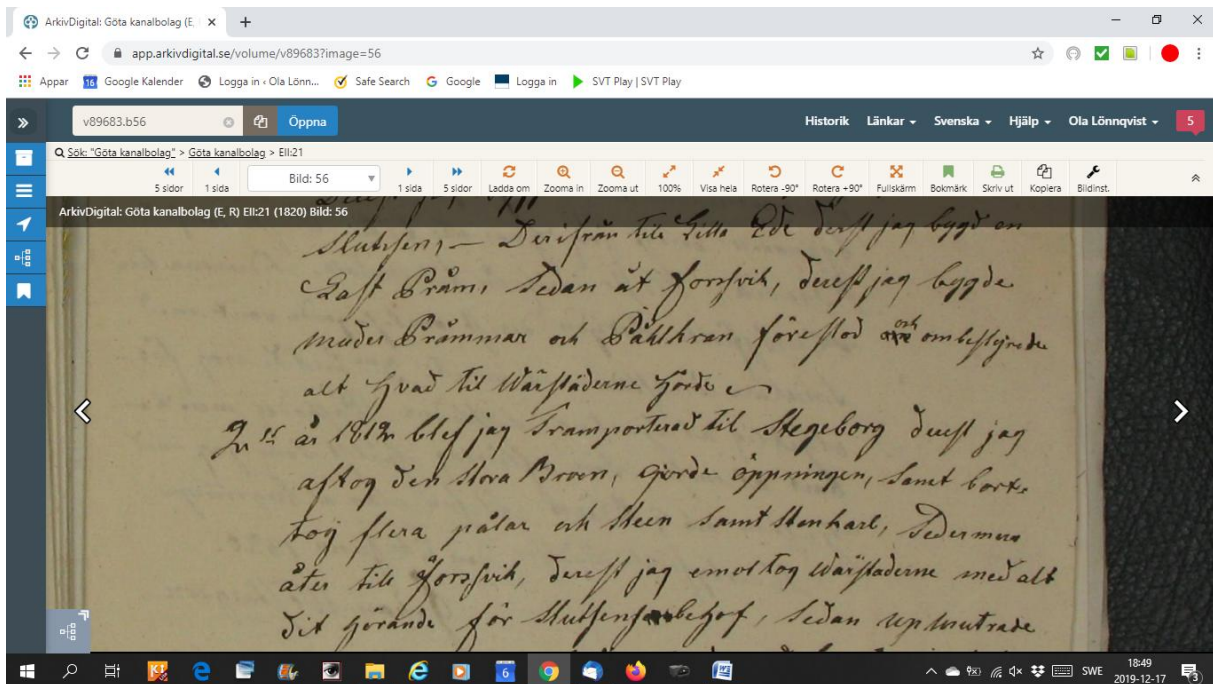 ArkivDigital: Göta kanalbolag (E,
app.arkivdigital.se/volume/v89683?image=56
Appar 16 Google Kalender Logga in ‹ Ola Lönn... Safe Search Google Logga in SVT Play | SVT Play
v89683.b56 Öppna Historik Länkar Svenska Hjälp Ola Lönnqvist 5
Sök: "Göta kanalbolag" > Göta kanalbolag > EII:21
5 sidor 1 sida Bild: 56 1 sida 5 sidor Ladda om Zooma in Zooma ut 100% Visa hela Rotera -90° Rotera +90° Fullskärm Bokmärk Skriv ut Kopiera Bildinst.
ArkivDigital: Göta kanalbolag (E, R) EII:21 (1820) Bild: 56
Slutsen, — Derifrån till Lilla Ede derest jag bygd en
Last Pråm, Sedan åt Forssvik, derest jag bygde
muder Pråmmar och Pålkran förestod och ombestyrede
alt hvad til Wärfstäderne hörde
år 1812 blef jag Transporterad til Stegeborg derest jag
aftog den stora Broen, gjorde öppningen, samt bort-
tog flera pålar och Steen samt Stenkarl, Sedermera
åter till Forssvik, derest jag emottog Wärfstaderne med alt
dit hörande för Slutsens behof, Sedan upmutrade
6 SWE 18:49
2019-12-17 3